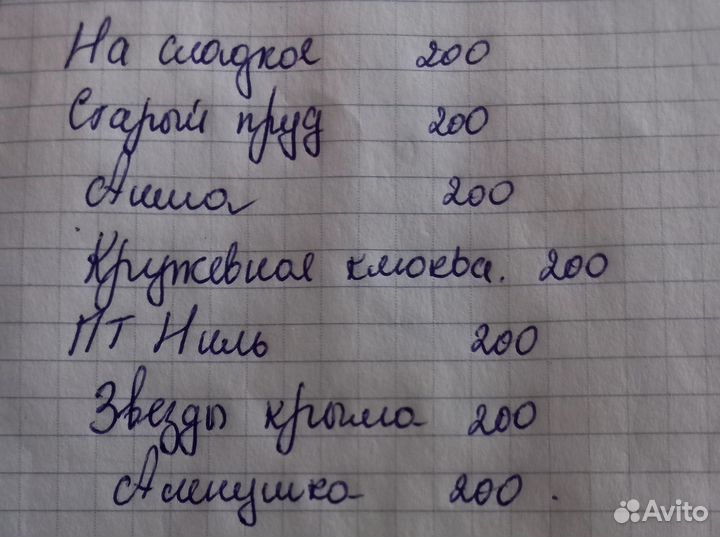 На сладкое 200
Старый пруд 200
Анна 200
Кружевная клюква. 200
ПТ Ниль 200
Звезды крыма 200
Аленушка 200.
Avito